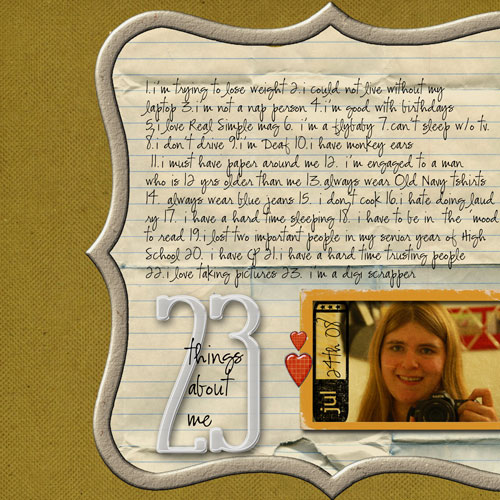 1. i'm trying to lose weight 2. i could not live without my
laptop 3. i'm not a nap person 4. i'm good with birthdays
5. i love Real Simple mag 6. i'm a flybaby 7. can't sleep w/o tv.
8. i don't drive 9. i'm Deaf 10. i have monkey ears
11. i must have paper around me 12. i'm engaged to a man
who is 12 yrs older than me 13. always wear Old Navy tshirts
14. always wear blue jeans 15. i don't cook 16. i hate doing laud
ry 17. i have a hard time sleeping 18. i have to be in the mood
to read 19. i lost two important people in my senior year of High
School 20. i have CP 21. i have a hard time trusting people
22. i love taking pictures 23. i'm a digi scrapper
23
things
about
me
jul 24th 08